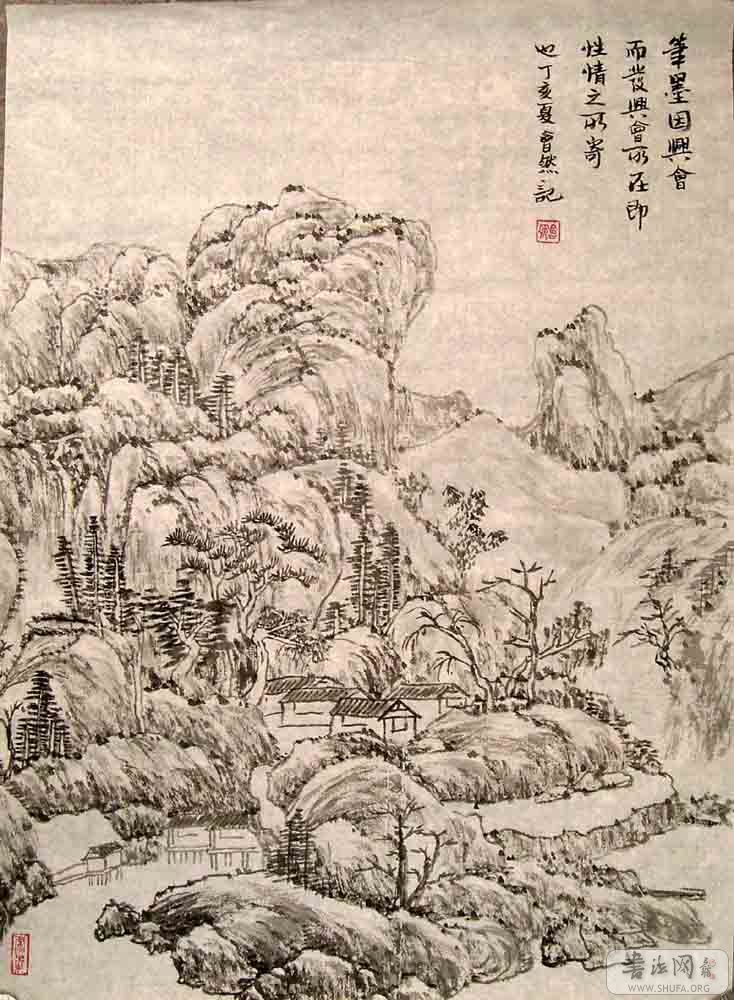 筆墨因興會
而發興會所在即
性情之所寄
也丁亥夏會然記
書法网
WWW.SHUFA.ORG